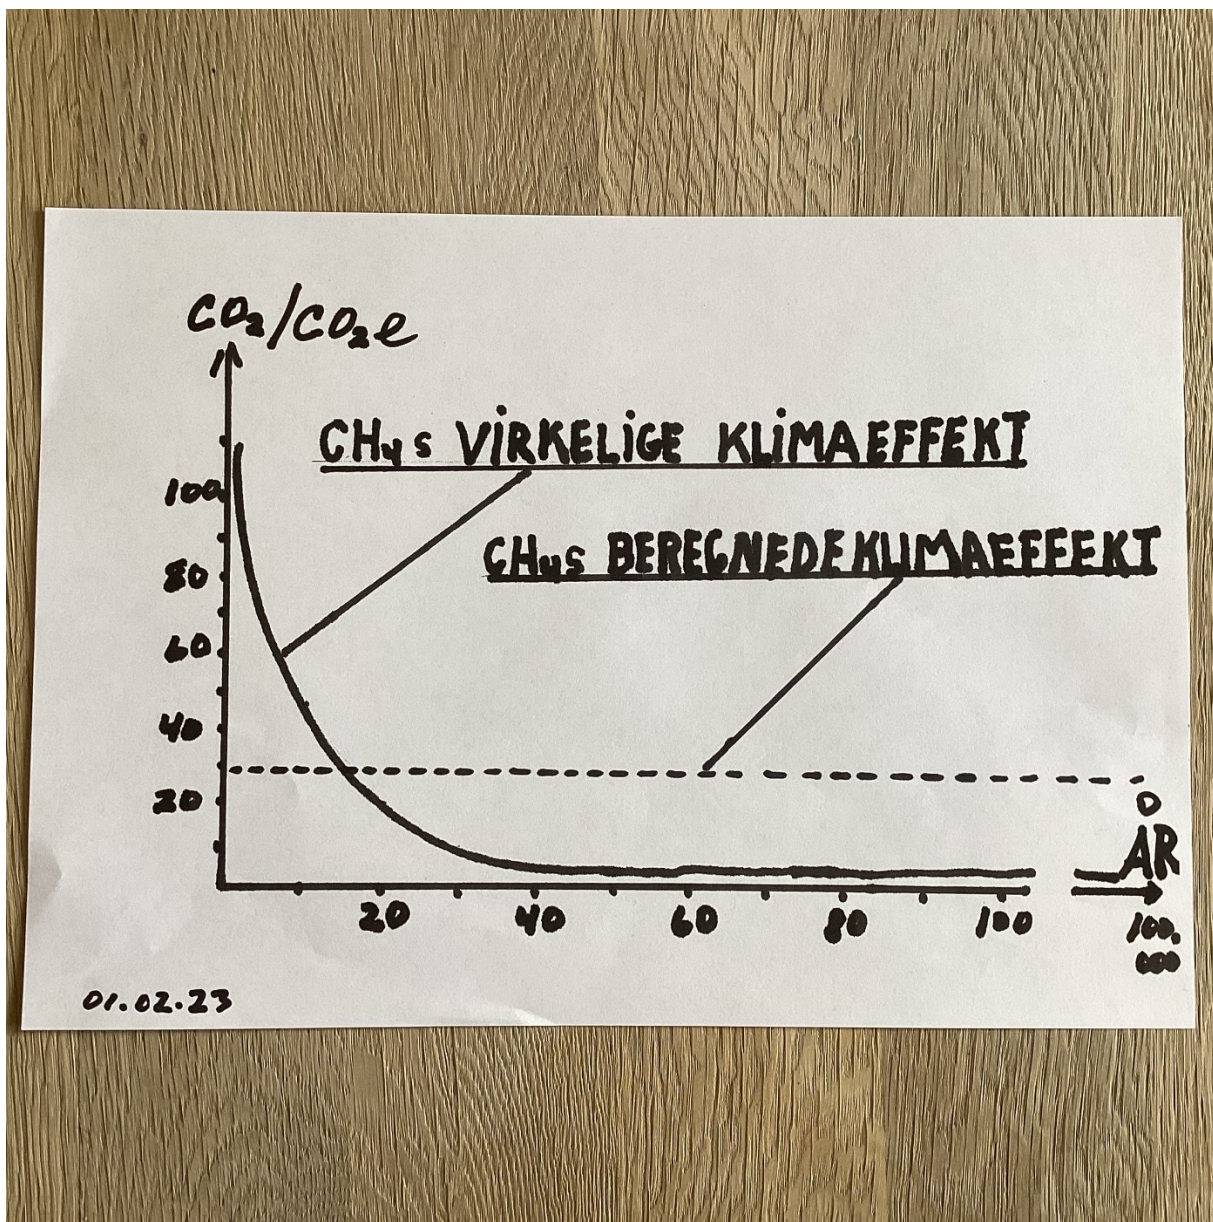 CO₂/CO₂e
CH₄s VIRKELIGE KLIMAEFFEKT
100
CH₄s BEREGNEDE KLIMAEFFEKT
80
60
40
20
ÅR
20 40 60 80 100 100.000
01.02.23